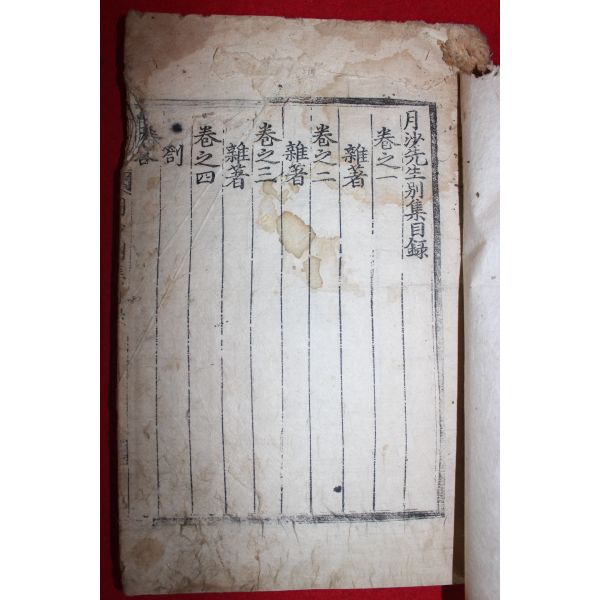 月沙先生別集目錄
卷之一
雜著
卷之二
雜著
卷之三
雜著
卷之四
劄